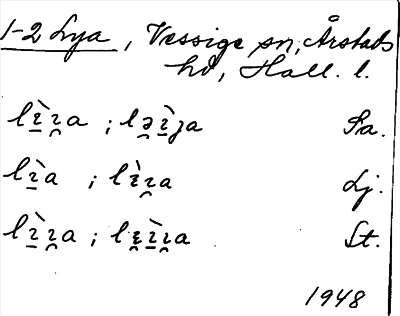 1-2 Lya, Vessige sn, Årstads
hd, Hall. l.
lɪ̀ɪ̯a ; ləɪ̀ja Sa.
lɪ̀a ; lɪ̀ɪ̯a Lj.
lɪ̀ɪ̯a ; lɛ̯ɪ̀ɪ̯a St.
1948